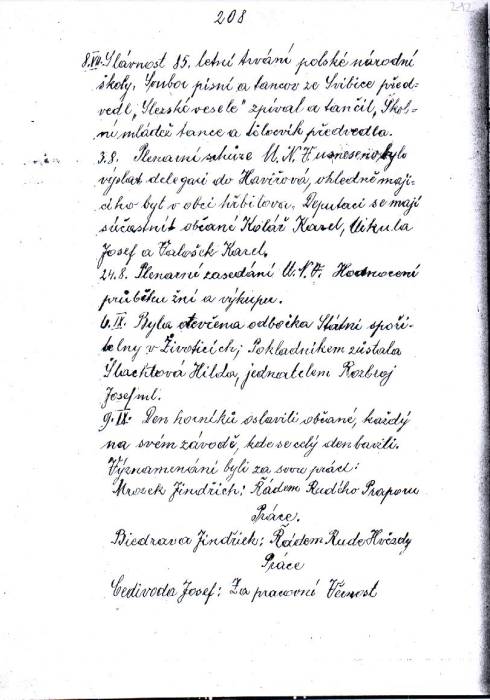 208
212
8.VII. Slávnost 85. letní trvání polské národní
školy. Soubor písní a tance ze Svibice před-
vedl „Slezské veselé" zpíval a tančil, Škol-
ní mládež tance a tělocvik předvedla.
3.8. Plenarní schůze M.N.V. usneseno, bylo
vyslat delegaci do Havířová, ohledně mají-
cího být v obci hřbitova. Deputaci se mají
súčastnit občané Kolář Karel, Mikula
Josef a Valošek Karel.
24.8. Plenarné zasedání M.N.V. Hodnocení
průběhu žní a výkupu.
6.IX. Byla otevřena odbočka Státní spoři-
telny v Životicích; Pokladníkem zůstala
Szlachtová Hilda, jednatelem Rozbroj
Josef ml.
9.IX. Den horníků oslavili občané, každý
na svém závodě, kde se celý den bavili.
Vyznamenáni byli za svou práci:
Mrozek Jindřich: Řádem Rudého Praporu
Práce.
Biedrava Jindřich: Řádem Rudé Hvězdy
Práce
Cedivoda Josef: Za pracovní Věrnost